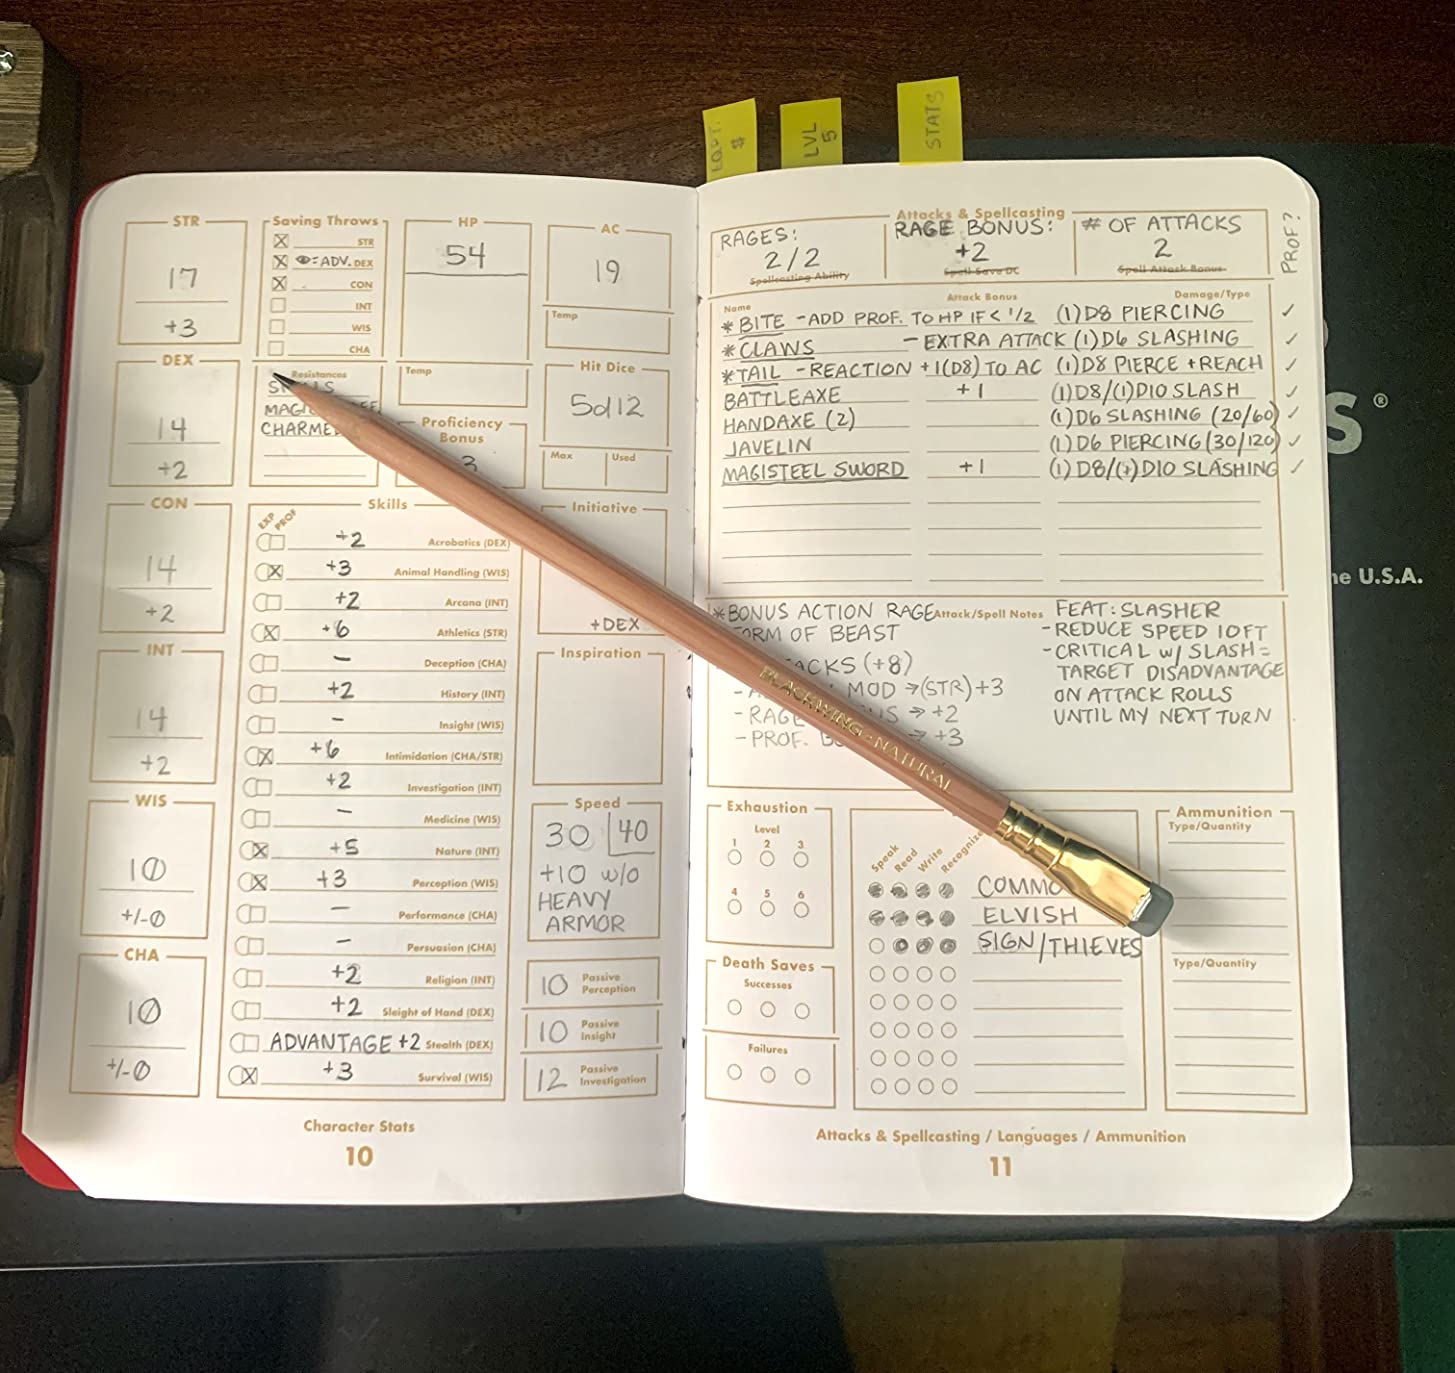 EQPT. $
LVL 5
STATS
STR
17
+3
DEX
14
+2
CON
14
+2
INT
14
+2
WIS
10
+/-0
CHA
10
+/-0
Saving Throws
X STR
X = ADV. DEX
X CON
INT
WIS
CHA
Resistances
MAGIC
CHARME
HP
54
Temp
Proficiency Bonus
3
AC
19
Temp
Hit Dice
5d12
Max Used
Initiative
+DEX
Inspiration
Speed
30 40
+10 w/o
HEAVY
ARMOR
10 Passive Perception
10 Passive Insight
12 Passive Investigation
Skills
EXP PROF
+2 Acrobatics (DEX)
X +3 Animal Handling (WIS)
+2 Arcana (INT)
X +6 Athletics (STR)
– Deception (CHA)
+2 History (INT)
– Insight (WIS)
X +6 Intimidation (CHA/STR)
+2 Investigation (INT)
– Medicine (WIS)
X +5 Nature (INT)
X +3 Perception (WIS)
– Performance (CHA)
– Persuasion (CHA)
+2 Religion (INT)
+2 Sleight of Hand (DEX)
ADVANTAGE +2 Stealth (DEX)
X +3 Survival (WIS)
Character Stats
10
Attacks & Spellcasting
RAGES:
2/2
Spellcasting Ability
RAGE BONUS:
+2
Spell Save DC
# OF ATTACKS
2
Spell Attack Bonus
PROF?
Name Attack Bonus Damage/Type
*BITE -ADD PROF. TO HP IF < 1/2 (1)D8 PIERCING ✓
*CLAWS - EXTRA ATTACK (1)D6 SLASHING ✓
*TAIL -REACTION +1(D8) TO AC (1)D8 PIERCE +REACH ✓
BATTLEAXE +1 (1)D8/(1)D10 SLASH ✓
HANDAXE (2) (1)D6 SLASHING (20/60) ✓
JAVELIN (1)D6 PIERCING (30/120) ✓
MAGISTEEL SWORD +1 (1)D8/(1)D10 SLASHING ✓
Attack/Spell Notes
*BONUS ACTION RAGE
OF BEAST
(+8)
MOD →(STR)+3
- RAGE → +2
- PROF. → +3
FEAT: SLASHER
-REDUCE SPEED 10FT
-CRITICAL w/ SLASH =
TARGET DISADVANTAGE
ON ATTACK ROLLS
UNTIL MY NEXT TURN
BLACKWING - NATURAL
Exhaustion
Level
1 2 3
4 5 6
Death Saves
Successes
Failures
Speak Read Write Recognize
COMMO
ELVISH
SIGN/THIEVES
Ammunition
Type/Quantity
Type/Quantity
Attacks & Spellcasting / Languages / Ammunition
11
S®
he U.S.A.